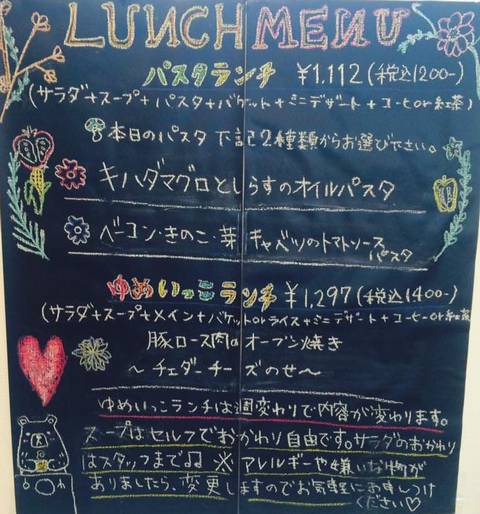 LUNCH MENU
パスタランチ ¥1,112(税込1200-)
(サラダ+スープ+パスタ+バケット+ミニデザート+コーヒーor紅茶)
本日のパスタ 下記2種類からお選び下さい。
キハダマグロとしらすのオイルパスタ
ベーコン・きのこ・芽キャベツのトマトソース
パスタ
ゆめいっこランチ ¥1,297(税込1400-)
(サラダ+スープ+メイン+バケットorライス+ミニデザート+コーヒーor紅茶
豚ロース肉のオーブン焼き
〜チェダーチーズのせ〜
ゆめいっこランチは週変わりで内容が変わります。
スープはセルフでおかわり自由です。サラダのおかわり
はスタッフまで♫ ※アレルギーや嫌いな物が
ありましたら、変更しますのでお気軽にお申しつけ
ください♡